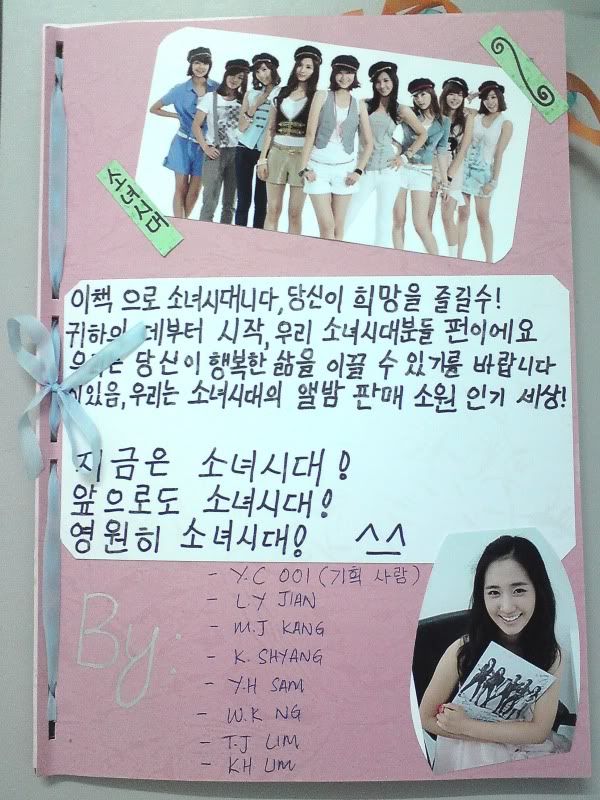 소녀시대
이책 으로 소녀시대니다,당신이 희망을 즐길수!
귀하의 데부터 시작,우리 소녀시대분들 편이에요
당신이 행복한 삶을 이끌 수 있기를 바랍니다
있음,우리는 소녀시대의 앨밤 판매 소원 인기 세상!
지금은 소녀시대!
앞으로도 소녀시대!
영원히 소녀시대! ^_^
By:
- Y.C 001 (기획 사람)
- L.Y JIAN
- M.J KANG
- K. SHYANG
- Y.H SAM
- W.K NG
- T.J LIM
- KH LIM